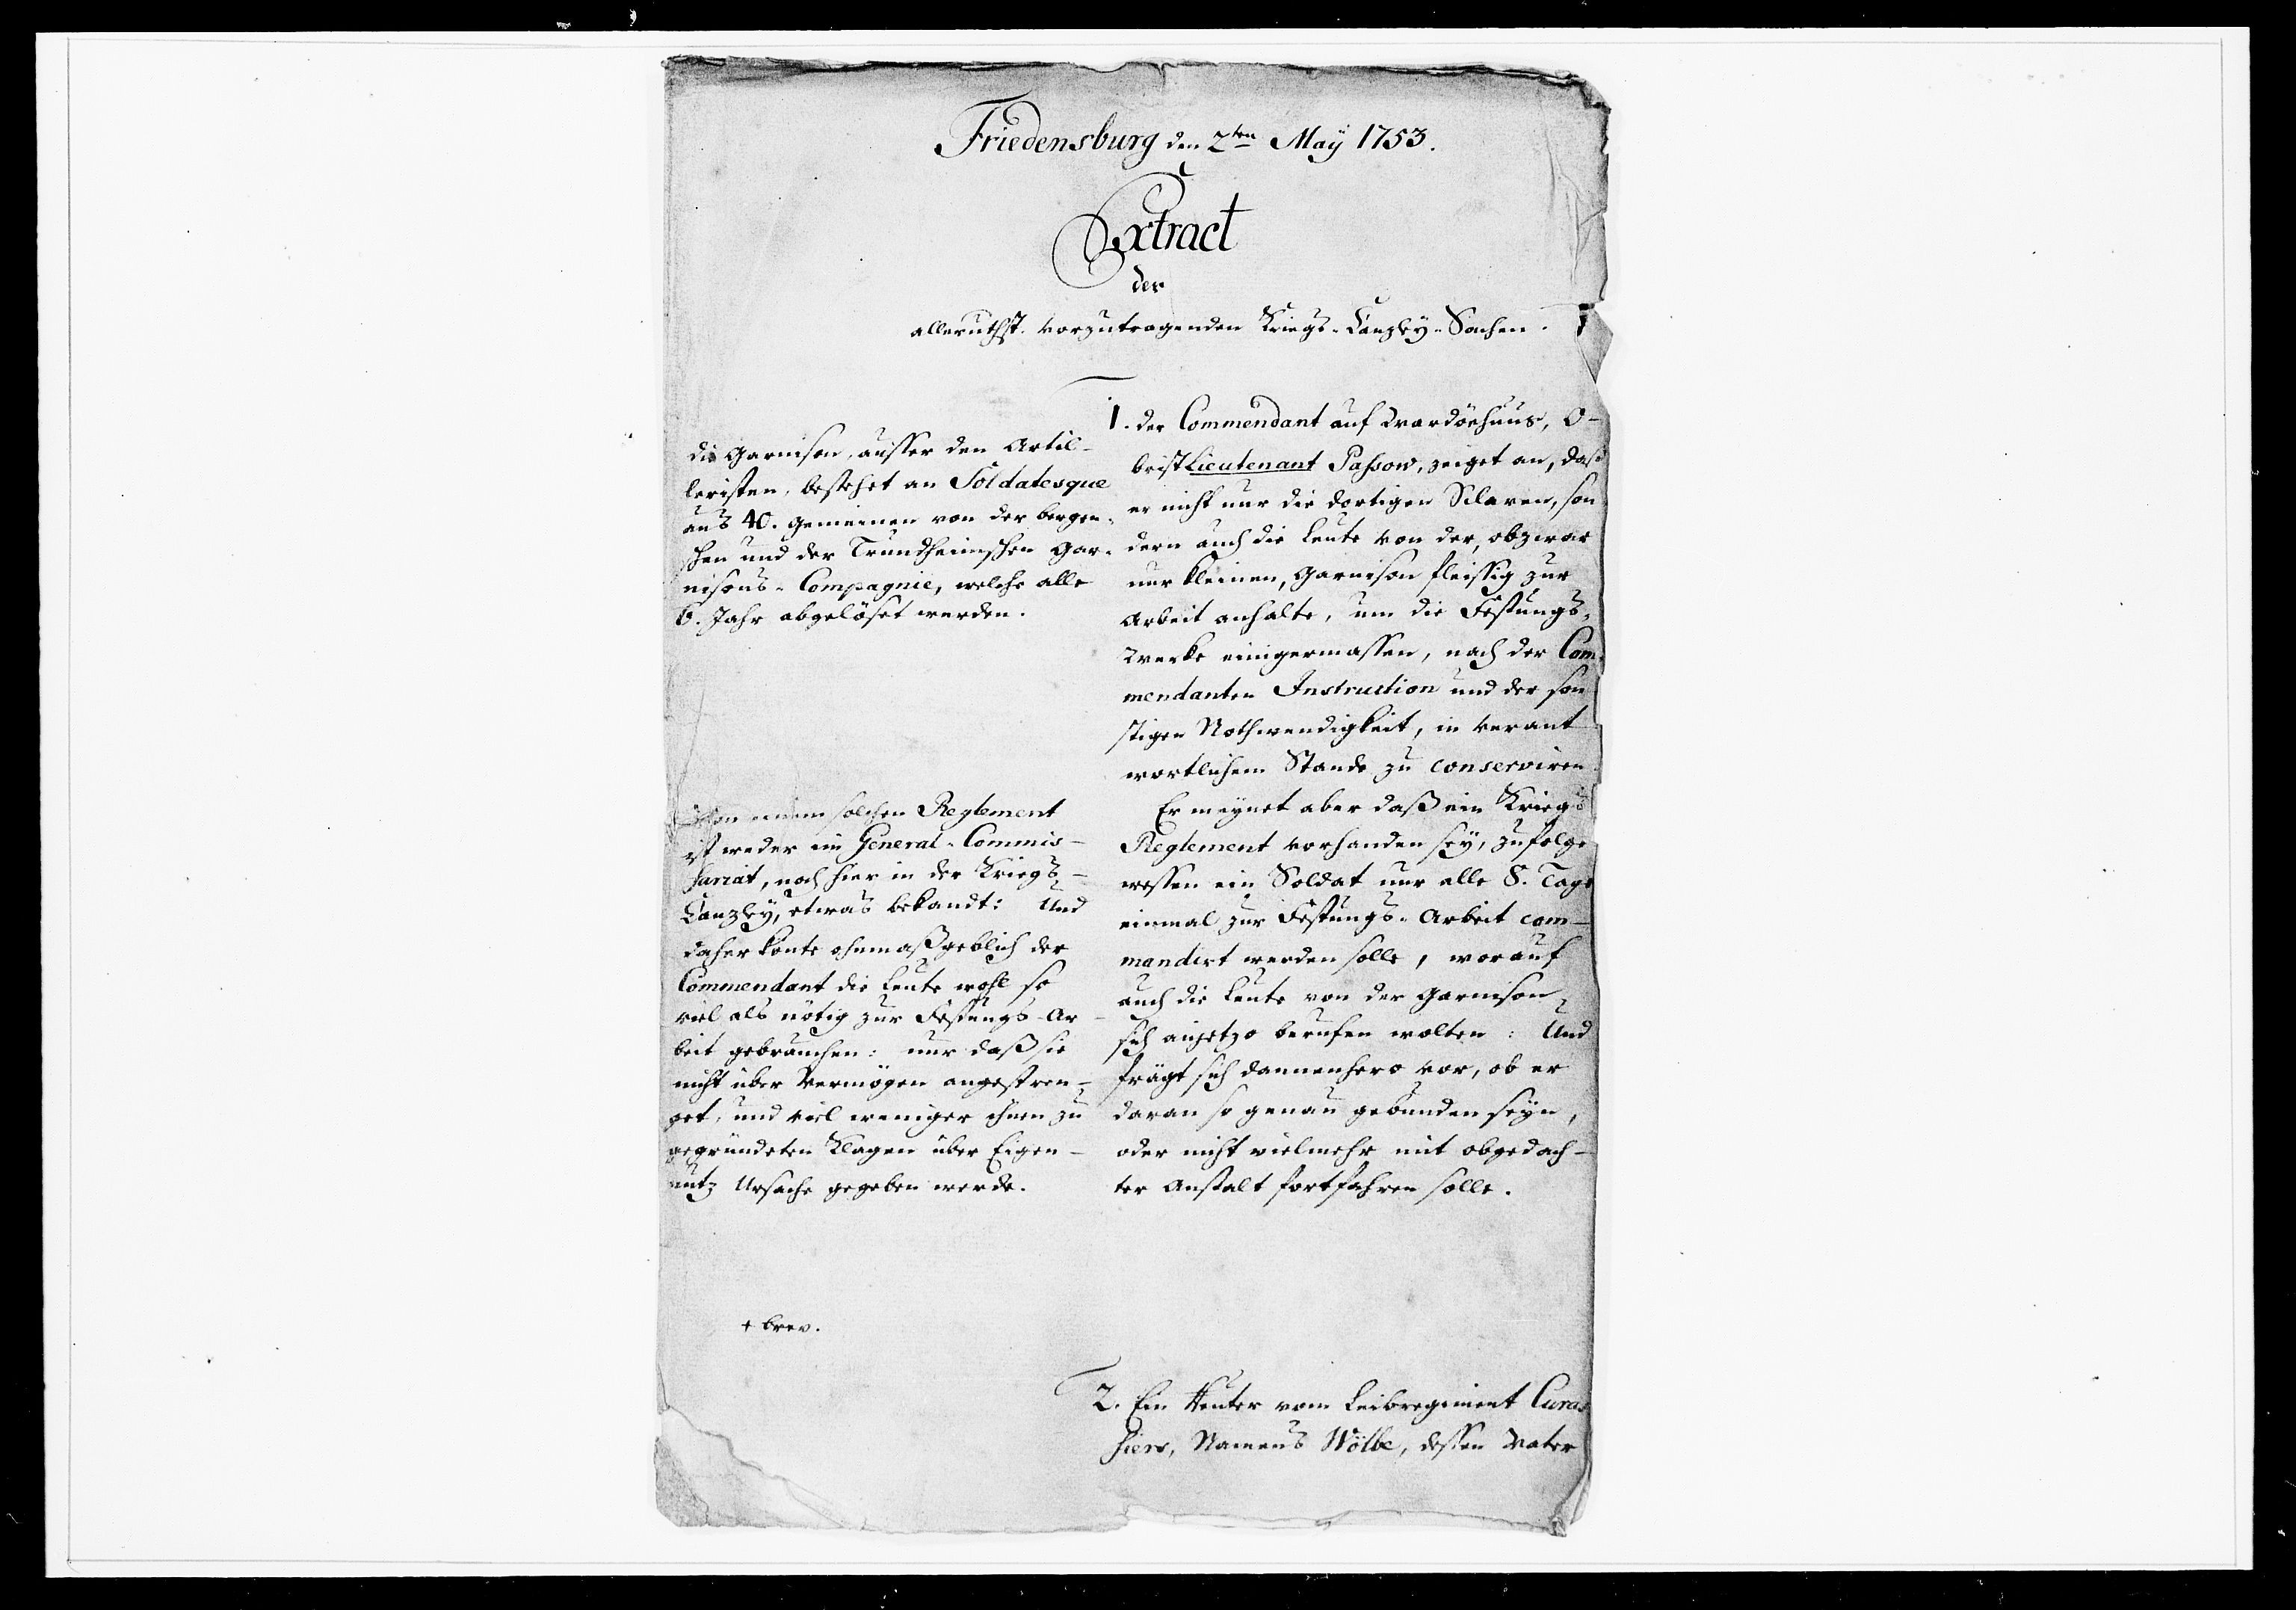 Friedensburg den 2ten Maÿ 1753.
Extract
der
alleruthst. vorzutragenden Kriegs-Canzleÿ-Sachen.
1. der Commendant auf Wardöehuus, O-
bristLieutenant Passow, zeiget an, daß
er nicht nur die dortigen Sclaven, son
dern auch die Leute von der, obzwar
nur kleinen, Garnison fleissig zur
Arbeit anhalte, um die Festungs-
Werke einigermassen, nach der Com
mendanten Instruction und der son
stigen Nothwendigkeit, in verant
wortlichem Stande zu conserviren
Er meÿnet aber daß ein Kriegs
Reglement vorhanden seÿ, zufolge
wessen ein Soldat nur alle 8. Tage
einmal zur Festungs-Arbeit com-
mandirt werden solle, worauf
auch die Leute von der Garnison
sich anjetzo berufen wolten: Und
frägt sich dannenhero vor, ob er
daran so genau gebunden seÿn,
oder nicht vielmehr mit obgedach-
ter Anstalt fortfahren solle.
die Garnison, ausser den Artil-
leristen, bestehet an Soldatesque
aus 40. Gemeinen von der bergen-
schen und der Trundheimschen Gar-
nisons-Compagnie, welche alle
6. Jahr abgelöset werden.
Von einem solchen Reglement
ist weder im General-Commis-
sariat, noch hier in der Kriegs-
Canzleÿ, etwas bekandt: Und
daher könte ohnmaßgeblich der
Commendant die Leute wohl so
viel als nötig zur Festungs-Ar-
beit gebrauchen: nur daß sie
nicht über Vermögen angestren-
get, und viel weniger ihnen zu
gegründeten Klagen über Eigen-
nutz Ursache gegeben werde.
+ brev.
2. Ein Reuter vom Leibregiment Curas
siers, Namens Wölbe, dessen Vater